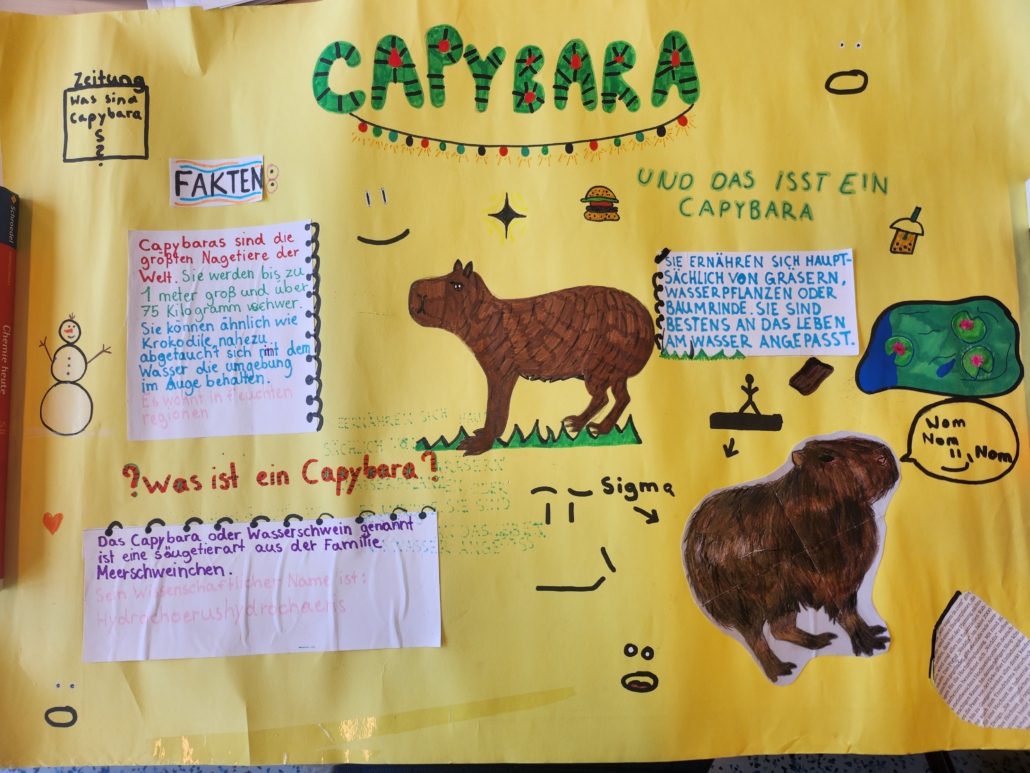 CAPYBARA
Zeitung
Was sind
Capybara
S
?
FAKTEN
UND DAS ISST EIN
CAPYBARA
Capybaras sind die
größten Nagetiere der
Welt. Sie werden bis zu
1 meter groß und über
75 Kilogramm schwer.
Sie können ähnlich wie
Krokodile nahezu
abgetaucht sich mit dem
Wasser die umgebung
im Auge behalten.
Es wohnt in feuchten
regionen
SIE ERNÄHREN SICH HAUPT-
SÄCHLICH VON GRÄSERN,
WASSERPFLANZEN ODER
BAUMRINDE. SIE SIND
BESTENS AN DAS LEBEN
AM WASSER ANGEPASST.
Nom
Nom
Nom
?Was ist ein Capybara?
Sigma
Das Capybara oder Wasserschwein genannt
ist eine säugetierart aus der Familie
Meerschweinchen.
Sein Wissenschaftlicher Name ist:
Hydrochoerushydrochaeris
Schroedel
Chemie heute